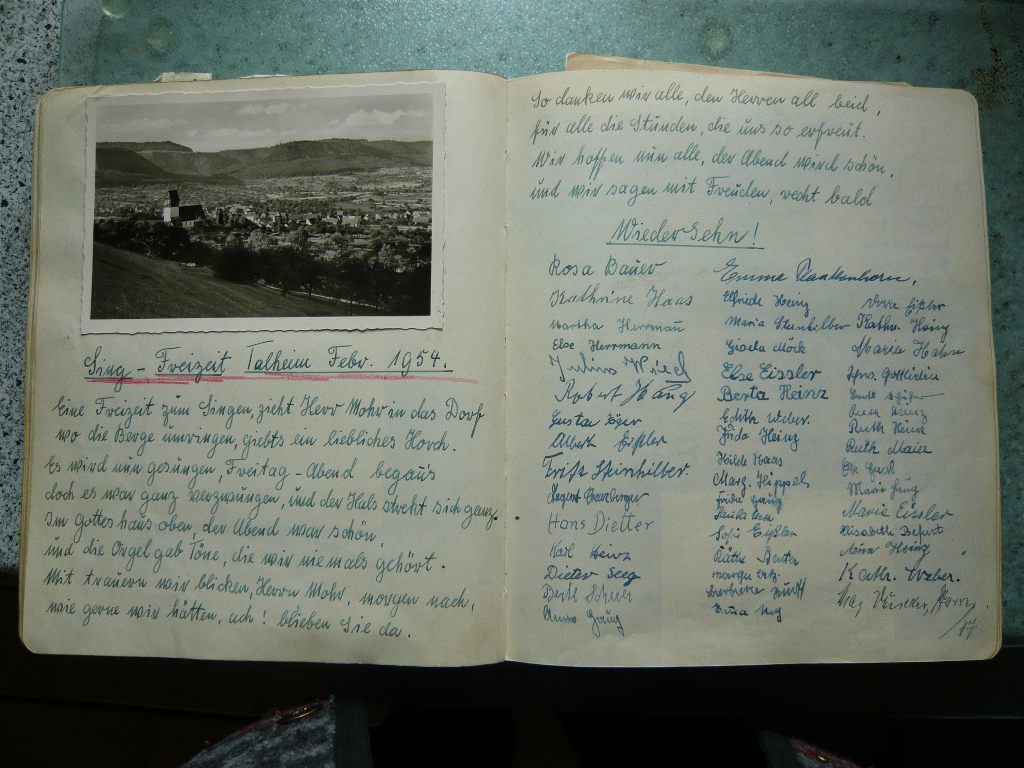 Sing - Freizeit Talheim Febr. 1954.
Eine Freizeit zum Singen, zieht Herr Mohr in das Dorf
wo die Berge umringen, giebts ein liebliches Horch.
Es wird nun gesungen, Freitag - Abend begaus
doch es war ganz verzwungen, und der Hals strekt sich ganz.
Im Gotteshaus oben, der Abend war schön,
und die Orgel gab Töne, die wir niemals gehört.
Mit trauern wir blicken, Herrn Mohr, morgen nach,
wie gerne wir hätten, ach! blieben Sie da.
So danken wir alle, den Herren all beid,
für alle die Stunden, die uns so erfreut.
Wir hoffen nun alle, der Abend wird schön,
und wir sagen mit Freuden, recht bald
Wieder Sehn!
Rosa Bauer
Kathrine Haas
Martha Herrman̄
Else Herrmann
Julius Wied
Robert Haug
Gusta Eger
Albert Eißler
Fritz Steinhilber.
Hans Dietter
Karl Heinz
Dieter Seeg
Bertl Scherer
Anna Haug
Emma
Elfriede Heinz
Maria Steinhilber
Gisela Möck
Else Eissler
Berta Heinz
Edith Weber.
Frida Heinz
Hilde Haas
Marg. Hippel
Frida Haug
Sofie Eißler
Käthe
Barbara
Erna
Eißler
Kathr. Heinz
Maria Hahn
Ruth Heinz
Ruth Heinz
Ruth Maier
Maria Haug
Maria Eissler
Elisabeth
Anna Heinz
Kathr. Weber.